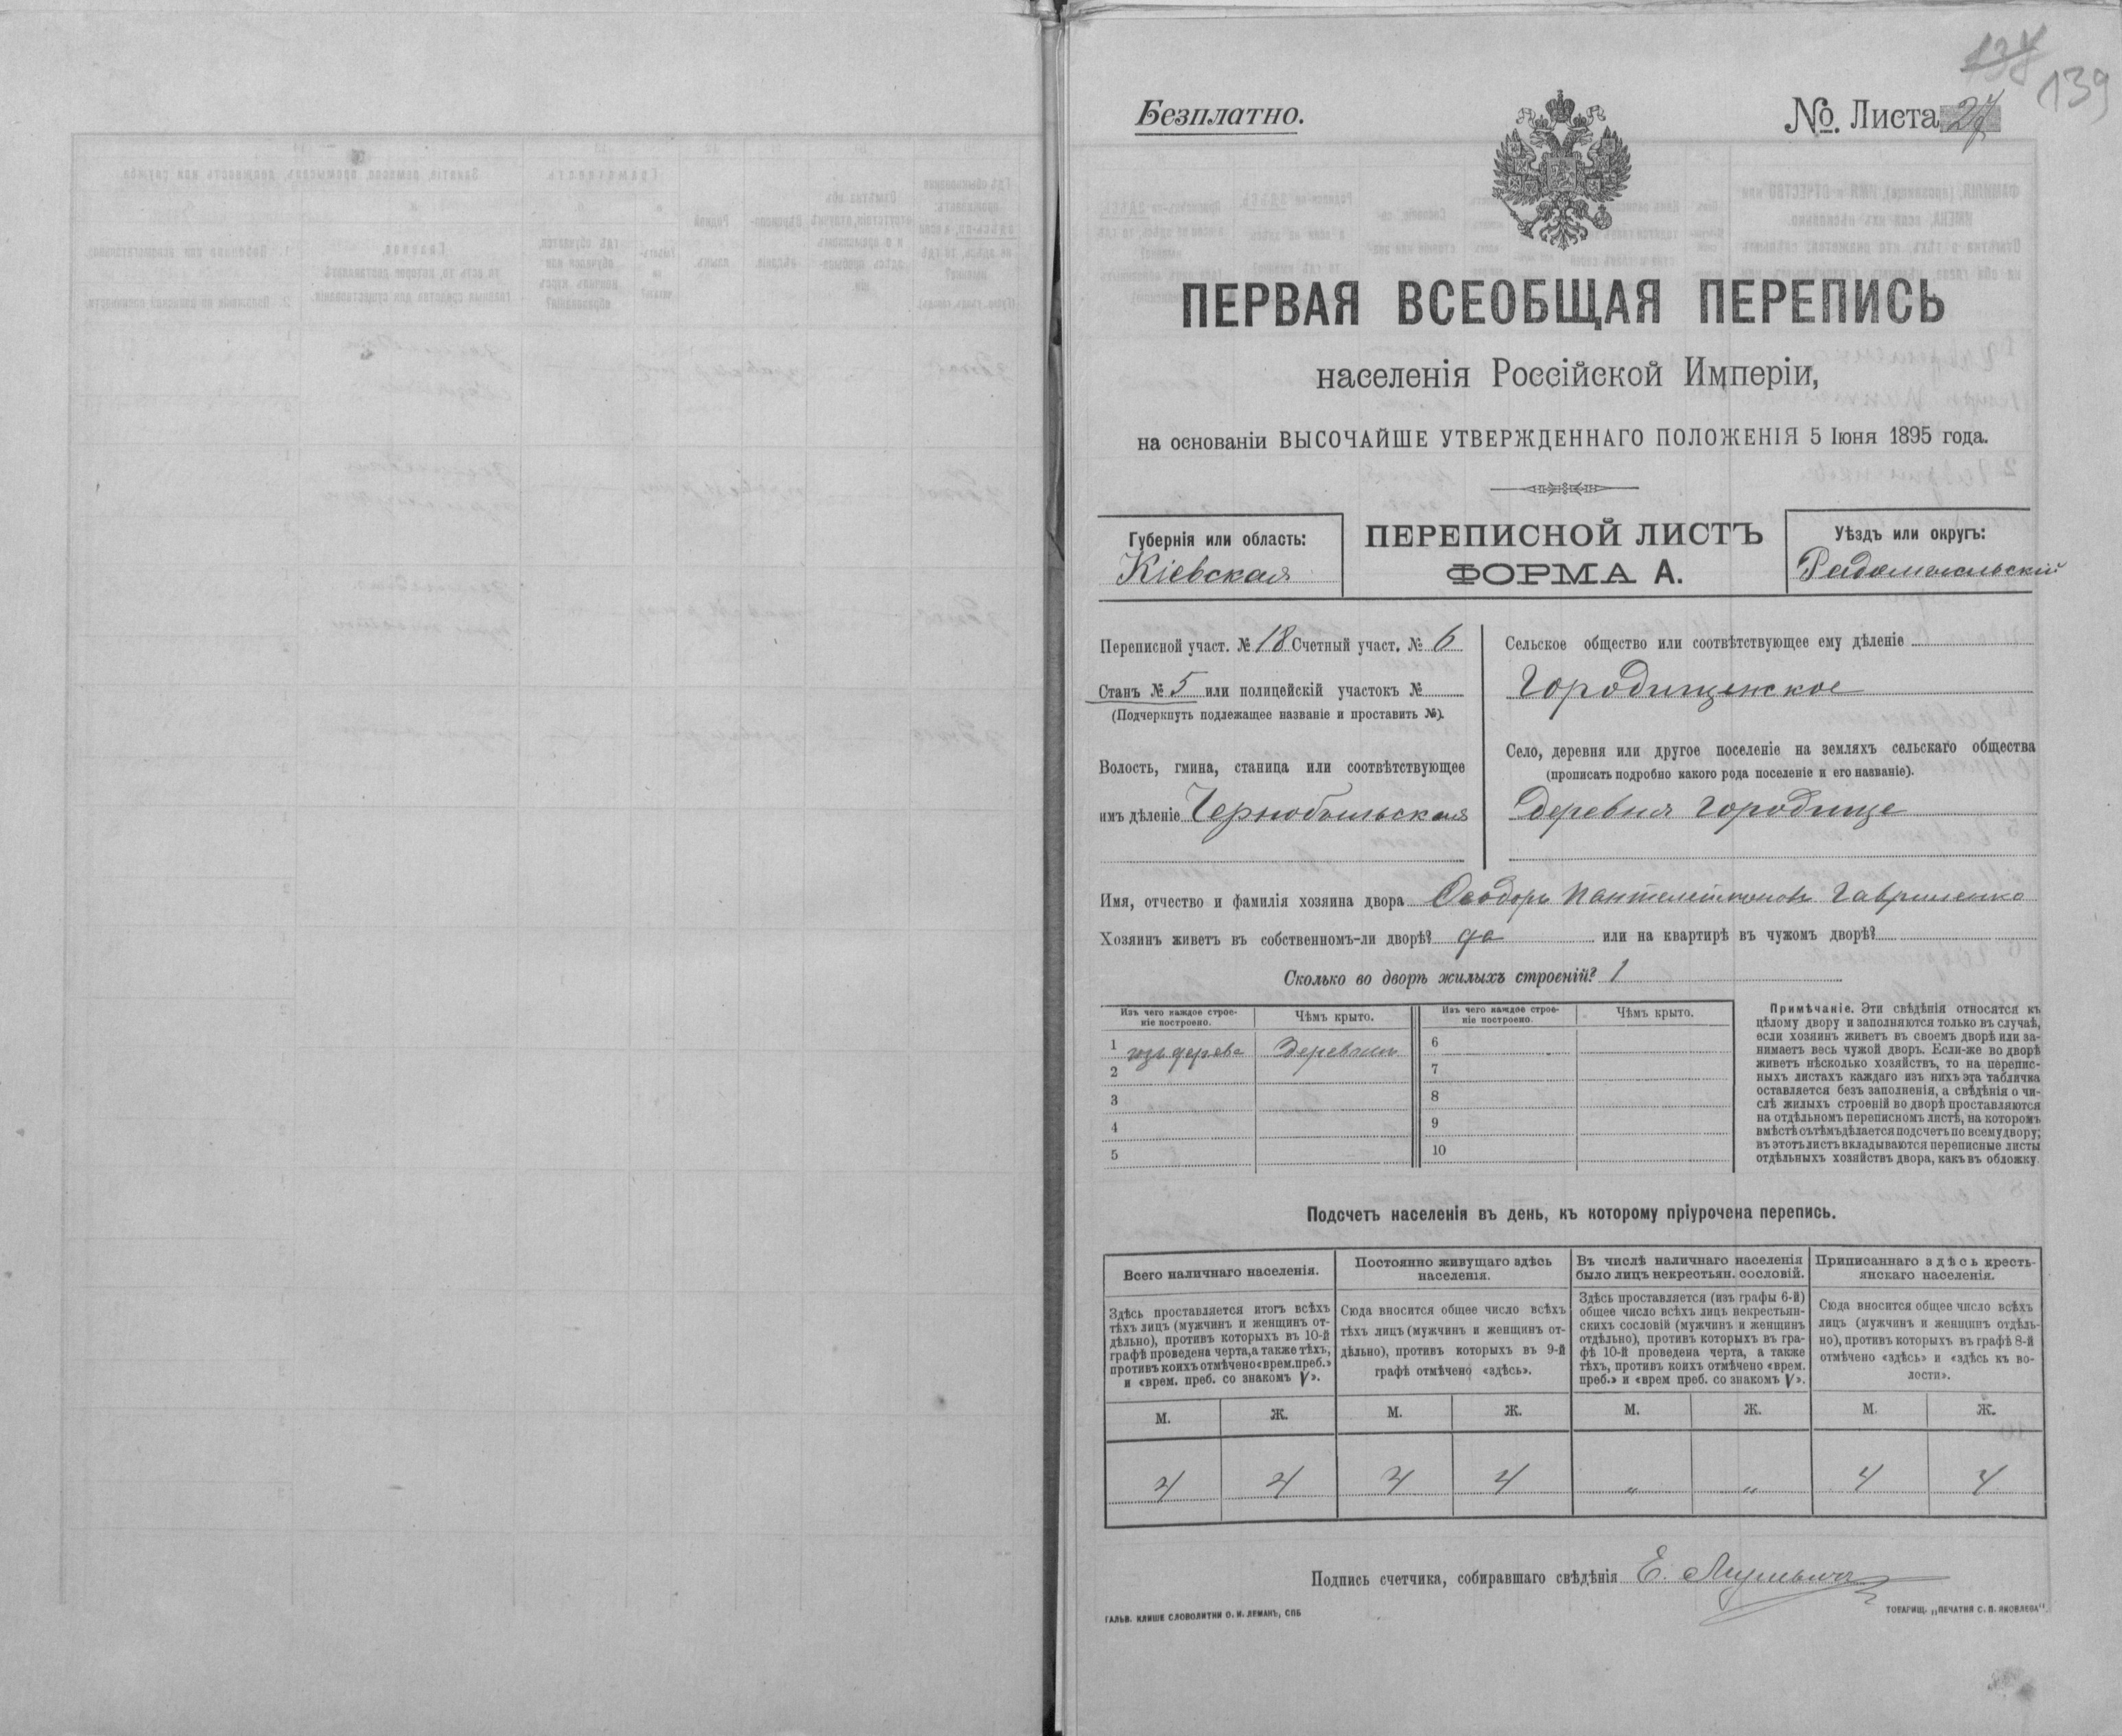 138
139
Безплатно.
№. Листа 27
ПЕРВАЯ ВСЕОБЩАЯ ПЕРЕПИСЬ
населенія Россійской Имперіи,
на основаніи ВЫСОЧАЙШЕ УТВЕРЖДЕННАГО ПОЛОЖЕНІЯ 5 Іюня 1895 года.
Губернія или область:
Кіевская
ПЕРЕПИСНОЙ ЛИСТЪ
ФОРМА А.
Уѣздъ или округъ:
Радомысльскій
Переписной участ. № 18 Счетный участ. № 6
Станъ № 5 или полицейскій участокъ №
(Подчеркнуть подлежащее названіе и проставить №).
Волость, гмина, станица или соотвѣтствующее
имъ дѣленіе Чернобыльская
Сельское общество или соотвѣтствующее ему дѣленіе
Городищенское
Село, деревня или другое поселеніе на земляхъ сельскаго общества
(прописать подробно какого рода поселеніе и его названіе).
Деревня Городище
Имя, отчество и фамилія хозяина двора Ѳеодоръ Пантелеймоновъ Гавриленко
Хозяинъ живетъ въ собственномъ-ли дворѣ? да или на квартирѣ въ чужомъ дворѣ?
Сколько во дворѣ жилыхъ строеній? 1
Изъ чего каждое строе-
ніе построено.
Чѣмъ крыто.
Изъ чего каждое строе-
ніе построено.
Чѣмъ крыто.
1 изъ дерева Деревомъ 6
2 7
3 8
4 9
5 10
Примѣчаніе. Эти свѣдѣнія относятся къ
цѣлому двору и заполняются только въ случаѣ,
если хозяинъ живетъ въ своемъ дворѣ или за-
нимаетъ весь чужой дворъ. Если-же во дворѣ
живетъ нѣсколько хозяйствъ, то на перепис-
ныхъ листахъ каждаго изъ нихъ эта табличка
оставляется безъ заполненія, а свѣдѣнія о чи-
слѣ жилыхъ строеній во дворѣ проставляются
на отдѣльномъ переписномъ листѣ, на которомъ
вмѣстѣ съ тѣмъ дѣлается подсчетъ по всему двору;
въ этотъ листъ вкладываются переписные листы
отдѣльныхъ хозяйствъ двора, какъ въ обложку.
Подсчетъ населенія въ день, къ которому пріурочена перепись.
Всего наличнаго населенія.
Постоянно живущаго здѣсь
населенія.
Въ числѣ наличнаго населенія
было лицъ некрестьян. сословій.
Приписаннаго здѣсь кресть-
янскаго населенія.
Здѣсь проставляется итогъ всѣхъ
тѣхъ лицъ (мужчинъ и женщинъ от-
дѣльно), противъ которыхъ въ 10-й
графѣ проведена черта, а также тѣхъ,
противъ коихъ отмѣчено «врем. преб.»
и «врем. преб. со знакомъ V».
Сюда вносится общее число всѣхъ
тѣхъ лицъ (мужчинъ и женщинъ от-
дѣльно), противъ которыхъ въ 9-й
графѣ отмѣчено «здѣсь».
Здѣсь проставляется (изъ графы 6-й)
общее число всѣхъ лицъ некрестьян-
скихъ сословій (мужчинъ и женщинъ
отдѣльно), противъ которыхъ въ гра-
фѣ 10-й проведена черта, а также
тѣхъ, противъ коихъ отмѣчено «врем.
преб.» и «врем преб. со знакомъ V».
Сюда вносится общее число всѣхъ
лицъ (мужчинъ и женщинъ отдѣль-
но), противъ которыхъ въ графѣ 8-й
отмѣчено «здѣсь» и «здѣсь къ во-
лости».
М. Ж. М. Ж. М. Ж. М. Ж.
4 4 4 4 " " 4 4
Подпись счетчика, собиравшаго свѣдѣнія Е.
ГАЛЬВ. КЛИШЕ СЛОВОЛИТНИ О. И. ЛЕМАНЪ, СПБ
ТОВАРИЩ. „ПЕЧАТНЯ С. П. ЯКОВЛЕВА“.